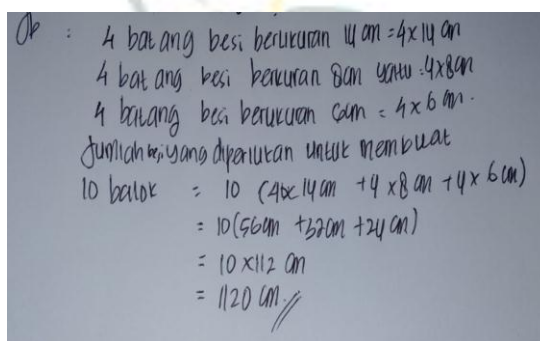 Jb : 4 batang besi berukuran 14 cm = 4x14 cm
4 batang besi berukuran 8cm yaitu = 4x8cm
4 batang besi berukuran 6cm = 4 x 6 cm.
Jumlah besi yang diperlukan untuk membuat
10 balok = 10 (4x14 cm + 4 x 8 cm + 4 x 6 cm)
= 10 (56cm + 32cm + 24 cm)
= 10 x 112 cm
= 1120 cm //